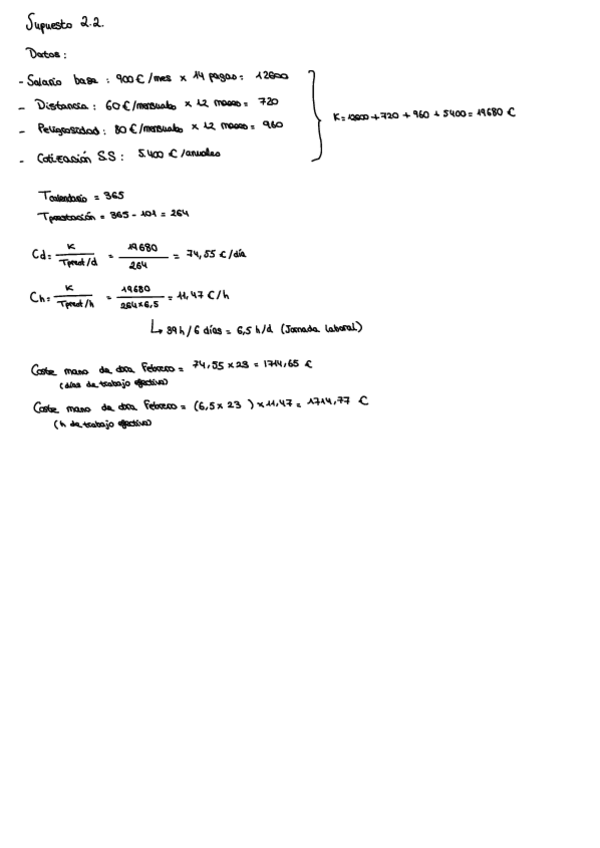 Supuesto 2.2.
Datos:
- Salario base: 900 €/mes x 14 pagas = 12600
- Distancia: 60 €/mensuales x 12 meses = 720
- Peligrosidad: 80 €/mensuales x 12 meses = 960
- Cotización S.S: 5.400 €/anuales
K = 12600 + 720 + 960 + 5400 = 19680 €
Tcalendario = 365
Tprestación = 365 - 101 = 264
Cd = K / Tprest/d = 19680 / 264 = 74,55 €/día
Ch = K / Tprest/h = 19680 / 264x6,5 = 11,47 €/h
↳ 39h/6 días = 6,5 h/d (Jornada laboral)
Coste mano de obra Febrero = 74,55 x 23 = 1714,65 €
(días de trabajo efectivo)
Coste mano de obra Febrero = (6,5 x 23 ) x 11,47 = 1714,77 €
(h de trabajo efectivo)